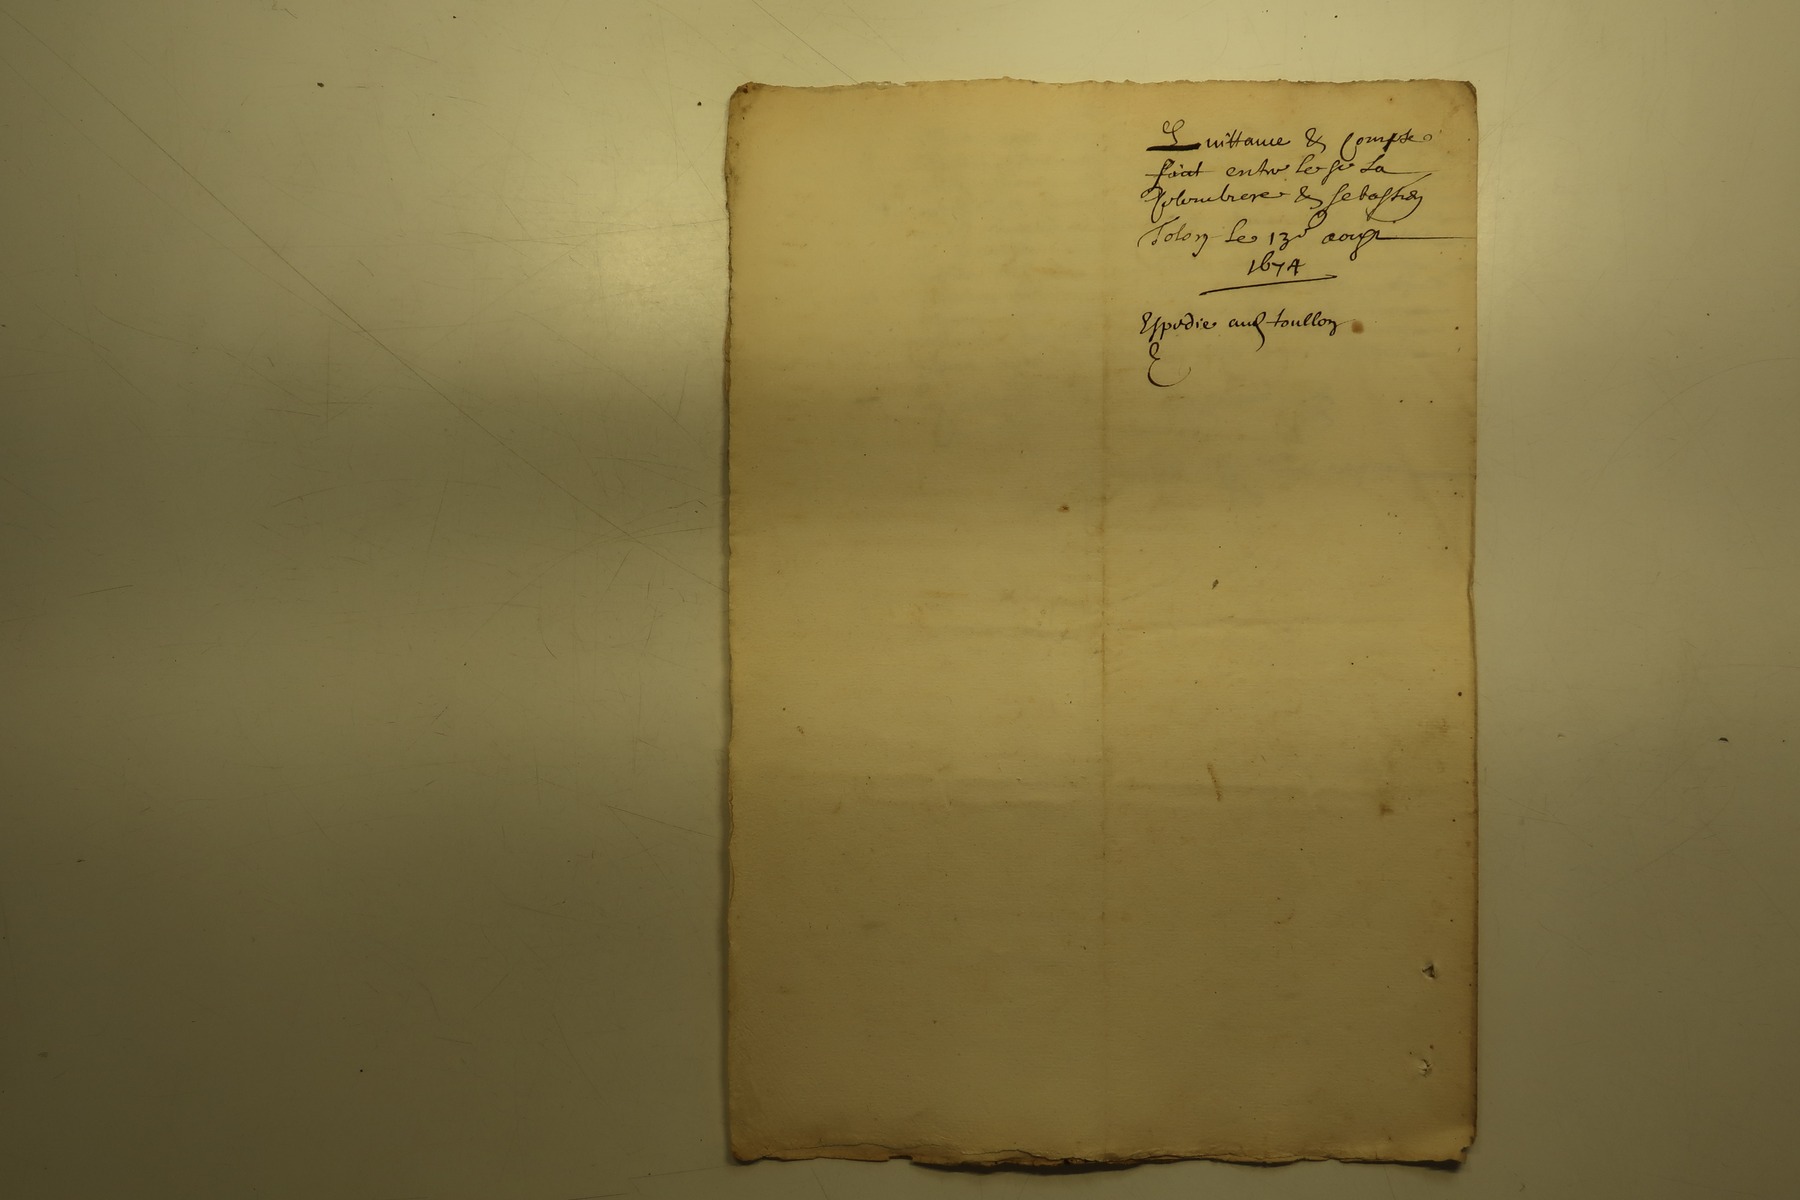 Quittance & Compte
faict entre le sr La
Colombiere & Sebastien
Tolon le 13e aoust
1674
Espediee aud toullon